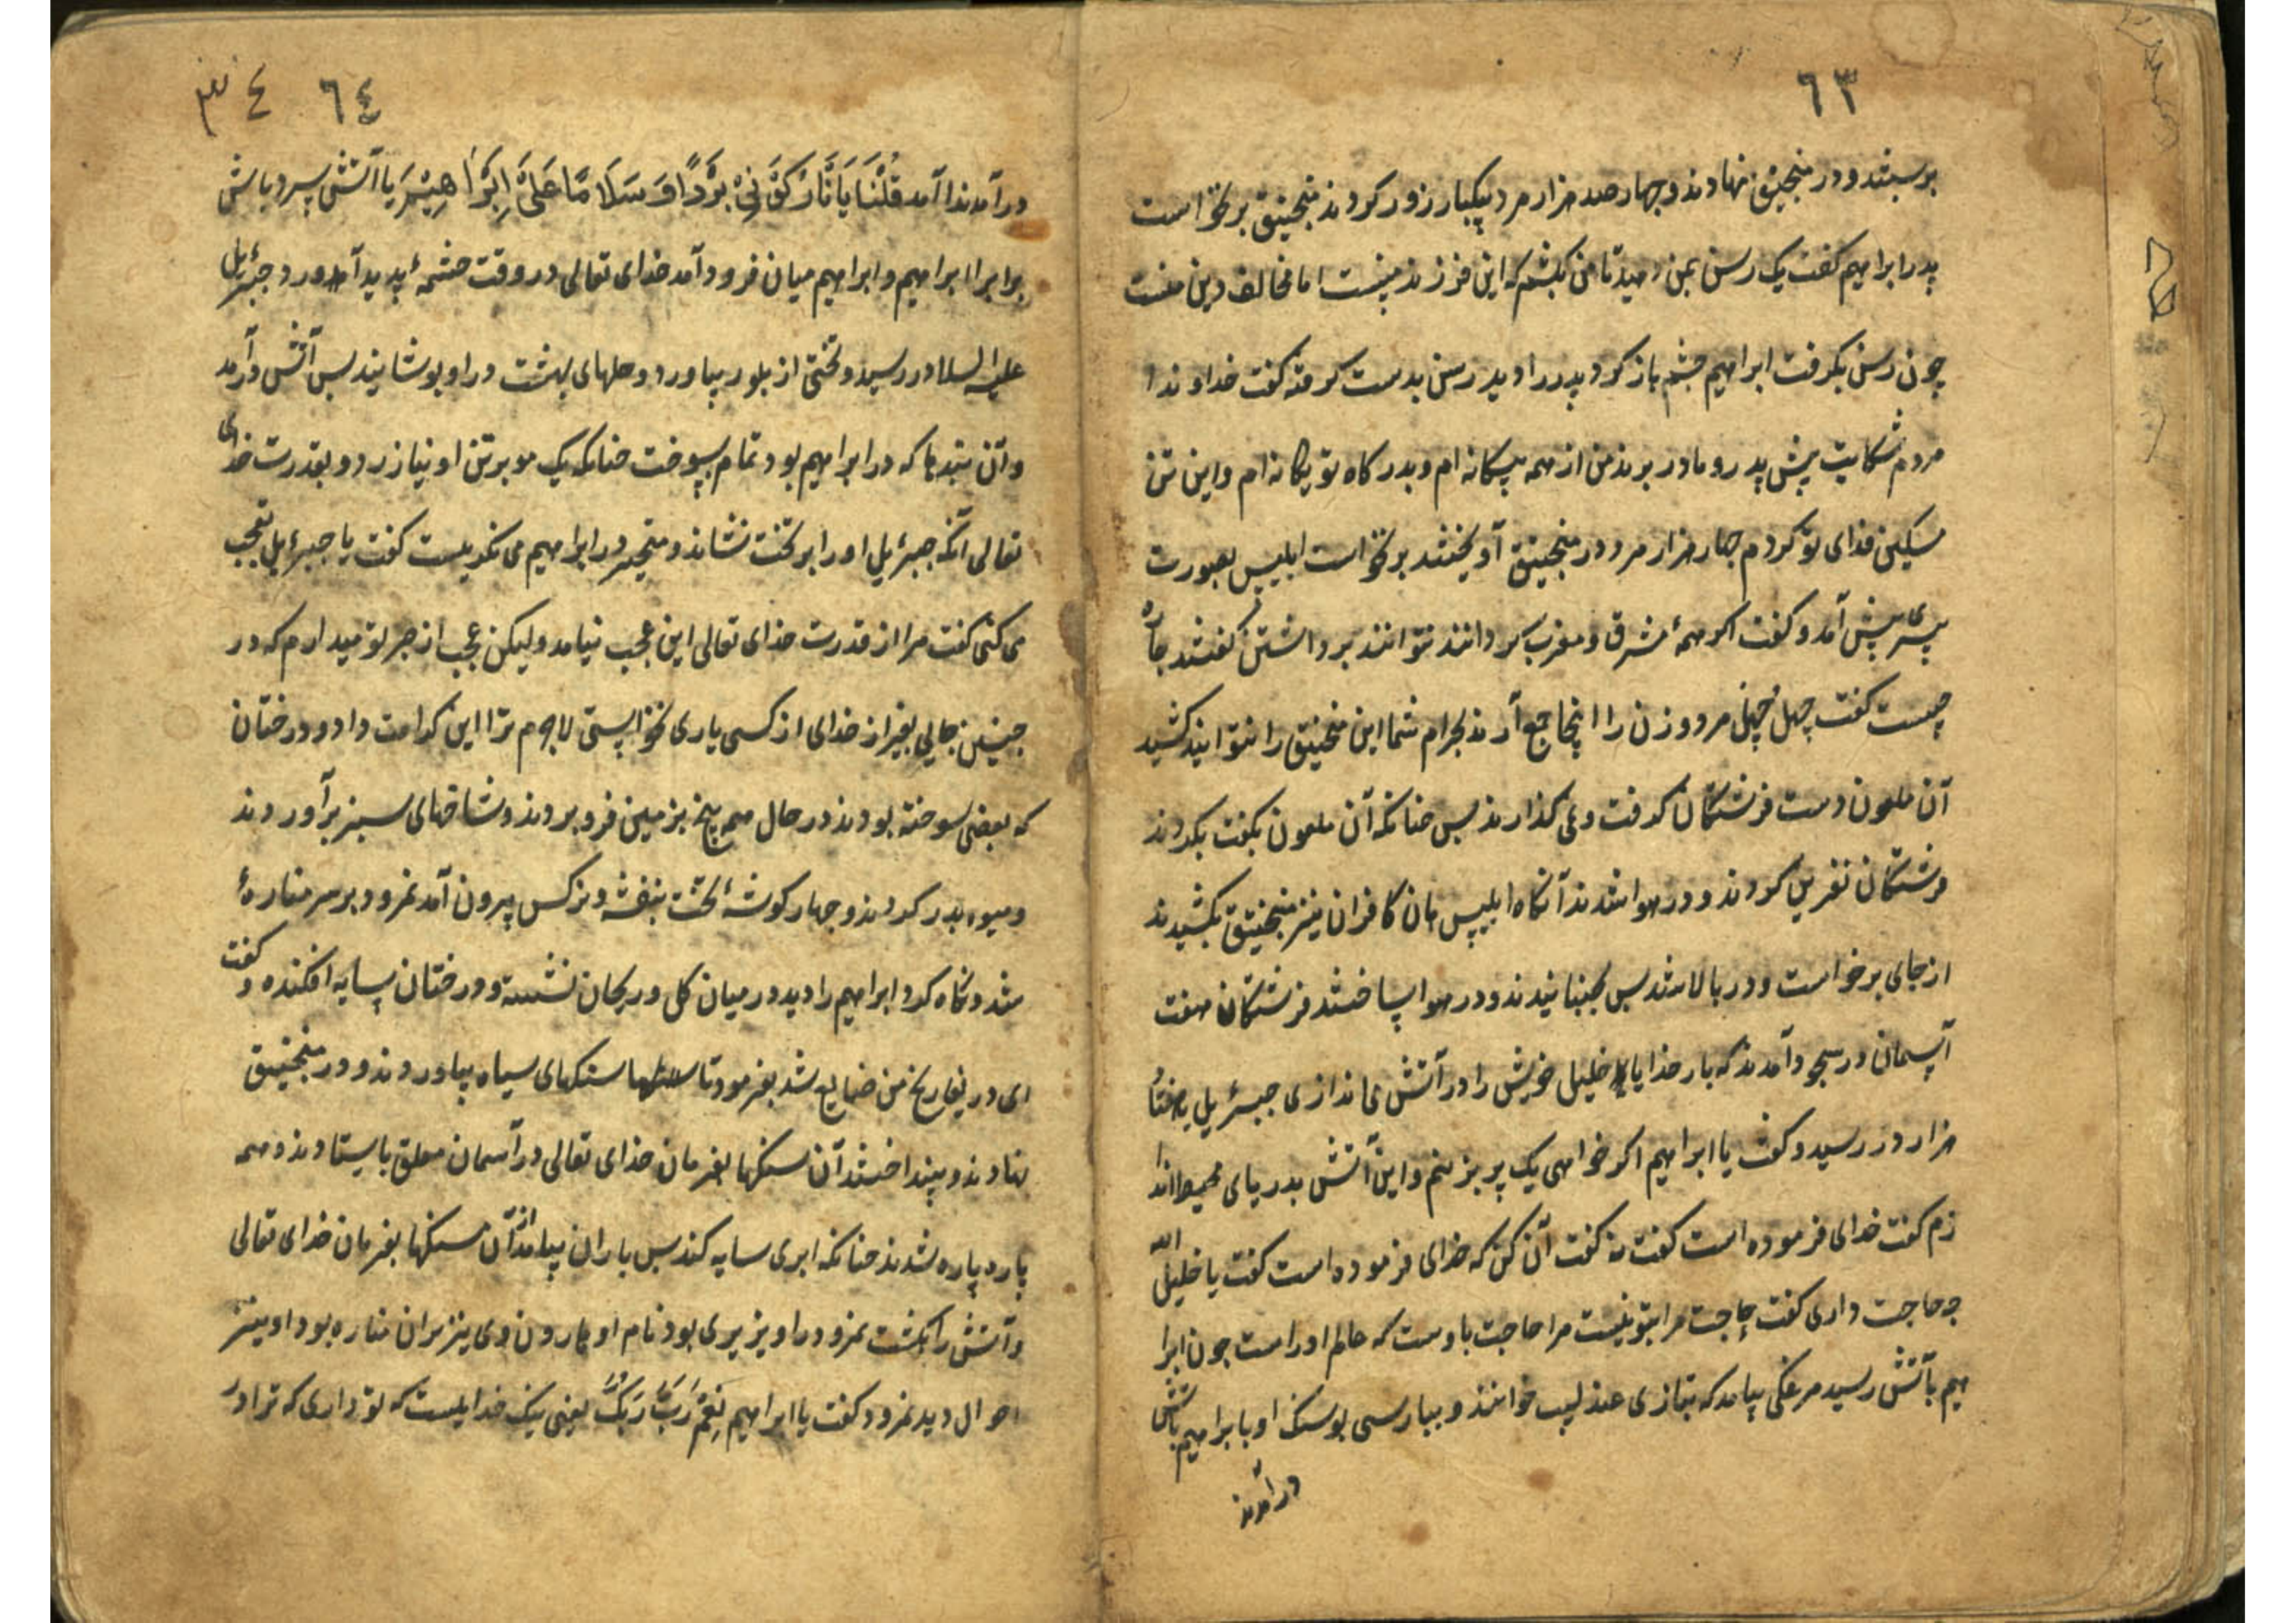 ٦٣
بربستند و در منجنیق نهادند و چهار صد هزار مرد بیکبار زور کردند منجنیق برنخواست
پدر ابراهیم کفت یک رسن بمن دهید تا من بکشم که این فرزند منست اما مخالف دین منست
چون رسن بکرفت ابراهیم چشم باز کرد پدر را دید رسن بدست کرفته کفت خداوندا
مردم شکایت پیش پدر و مادر برند من از همه بیکانه ام و بدرکاه تو یکانه ام و این تن
مسکین فدای تو کردم چهار هزار مرد در منجنیق آویختند برنخواست ابلیس بصورت
پیری پیش آمد و کفت اکر همهٔ مشرق و مغرب کرد انند نتوانند برداشتن کفتند چاره
چیست کفت چهل چهل مرد و زن را اینجا جمع آرند بحرام شما این منجنیق را بتوانید کشید
آن ملعون دست فرشتکان کرفت و می کذارند بس چنانکه آن ملعون بکفت بکردند
فرشتکان نفرین کردند و در هوا شدند آنکاه ابلیس هان کافران نیز منجنیق بکشیدند
از جای برخواست و در بالا شد بس بجنبانیدند و در هوا انداختند فرشتکان هفت
آسمان در سجود آمدند که بار خدایا خلیل خویش را در آتش می اندازی جبرئیل با هفتاد
هزار در رسید و کفت یا ابراهیم اکر خواهی یک پر بزنم و این آتش بدریای محیط اندا
زم کفت خدای فرموده است کفت نه کفت آن کن که خدای فرموده است کفت یا خلیل الله
چه حاجت داری کفت حاجت مرا بتو نیست مرا حاجت باوست که عالم اوراست چون ابرا
هیم بآتش رسید مرغکی بیامد که بتازی عندلیب خوانند و بپارسی بوسک او با ابراهیم بآتش
درآمدند
٣٤ ٦٤
درآمد ندا آمد قُلْنَا يَا نَارُ كُوْنِيْ بَرْدًا وَ سَلَامًا عَلَى اِبْرَاهِيْمَ یا آتش سرد باش
برابر ابراهیم و ابراهیم میان فرود آمد خدای تعالی در وقت چشمهٔ پدید آورد جبرئیل
علیه السلا در رسید و تختی از بلور بیاورد و حلهای بهشت در او بوشانید بس آتش درآمد
و آن بندها که در ابراهیم بود تمام بسوخت چنانکه یک مو بر تن او نیازرد و بقدرت خدای
تعالی آنکه جبرئیل او را بر تخت نشاند و متحیر در ابراهیم می نکریست کفت یا جبرئیل تعجب
می کنی کفت مرا از قدرت خدای تعالی این عجب نیامد ولیکن عجب از صبر تو میدارم که در
چنین جایی بغیر از خدای از کسی یاری نخواستی لاجرم ترا این کرامت داد و درختان
که بعضی سوخته بودند در حال همه بیخ بزمین فرو بردند و شاخهای سبز برآوردند
و میوه بدر کردند و چهار کوشهٔ تخت بنفشه و نرکس بیرون آمد نمرود بر سر منارهٔ
شد و نکاه کرد ابراهیم را دید در میان کل و ریحان نشسته و درختان سایه افکنده و کفت
ای دریغا رنج من ضایع شد بفرمود تا سنکهای سیاه بیاوردند و در منجنیق
نهادند و بینداختند آن سنکها بفرمان خدای تعالی در آسمان معلق بایستادند و همه
پاره پاره شدند چنانکه ابری سایه کند بس باران بیامد از آن سنکها بفرمان خدای تعالی
و آتش را بکشت نمرود را وزیری بود نام او هارون وی نیز بران مناره بود او نیز
احوال دید نمرود کفت یا ابراهیم نِعْمَ رَبُّ رَبُّكَ یعنی نیک خدایست که تو داری که ترا در